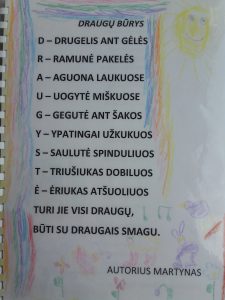 DRAUGŲ BŪRYS
D – DRUGELIS ANT GĖLĖS
R – RAMUNĖ PAKELĖS
A – AGUONA LAUKUOSE
U – UOGYTĖ MIŠKUOSE
G – GEGUTĖ ANT ŠAKOS
Y – YPATINGAI UŽKUKUOS
S – SAULUTĖ SPINDULIUOS
T – TRIUŠIUKAS DOBILUOS
Ė – ĖRIUKAS ATŠUOLIUOS
TURI JIE VISI DRAUGŲ,
BŪTI SU DRAUGAIS SMAGU.
AUTORIUS MARTYNAS